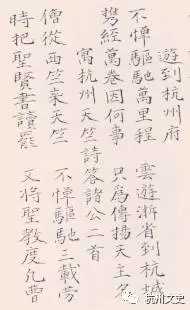 遊到杭州府
不憚驅馳萬里程　雲遊浙省到杭城
携經萬卷因何事　只為傳揚天主名
寓杭州天竺詩答諸公二首
僧從西竺来天竺　不憚驅馳三載勞
時把聖賢書讀罷　又將聖教度凡曹
杭州文史